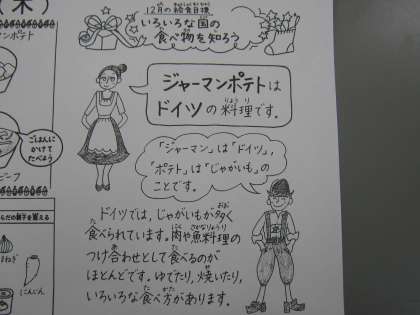 (木)
12月の給食目標
いろいろな国の
食べ物を知ろう
マンポテト
ジャーマンポテトは
ドイツの料理です。
ごはんに
かけて
たべよう
「ジャーマン」は「ドイツ」、
「ポテト」は「じゃがいも」の
ことです。
ドイツでは、じゃがいもが多く
食べられています。肉や魚料理の
つけ合わせとして食べるのが
ほとんどです。ゆでたり、焼いたり、
いろいろな食べ方があります。
らだの調子を整える
まねぎ
にんじん